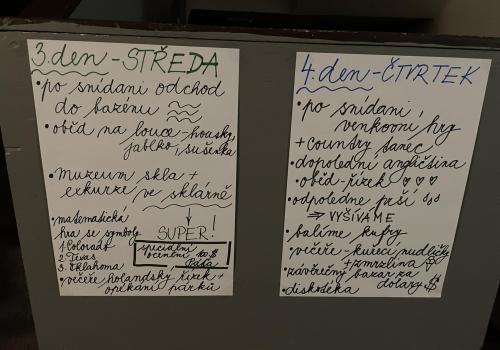 3. den - STŘEDA
• po snídani odchod
do bazénu
• oběd na louce - housky,
jablko, sušenka
• Muzeum skla +
exkurze ve sklárně
SUPER!
• matematická
hra se symboly
1. Colorado
2. Texas
3. Oklahoma
speciální
ocenění 10 $
Páťa
• večeře holandský řízek +
opékání párků
4. den - ČTVRTEK
• po snídani,
venkovní hry
+ country tanec
• dopolední angličtina
• oběd - řízek
• odpoledne prší
⇒ VYŠÍVÁME
• balíme kufry
• večeře - kuřecí nudličky
+ zmrzlina
• závěrečný bazar za
dolary $
• diskotéka